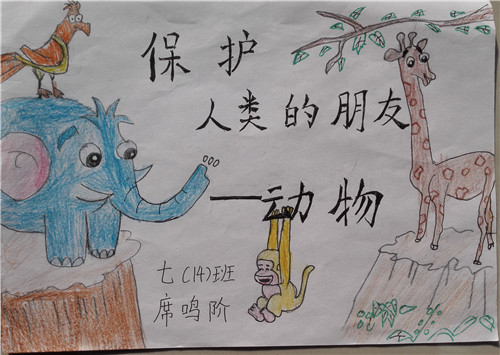 保护
人类的朋友
—动物
七(14)班
席鸣阶